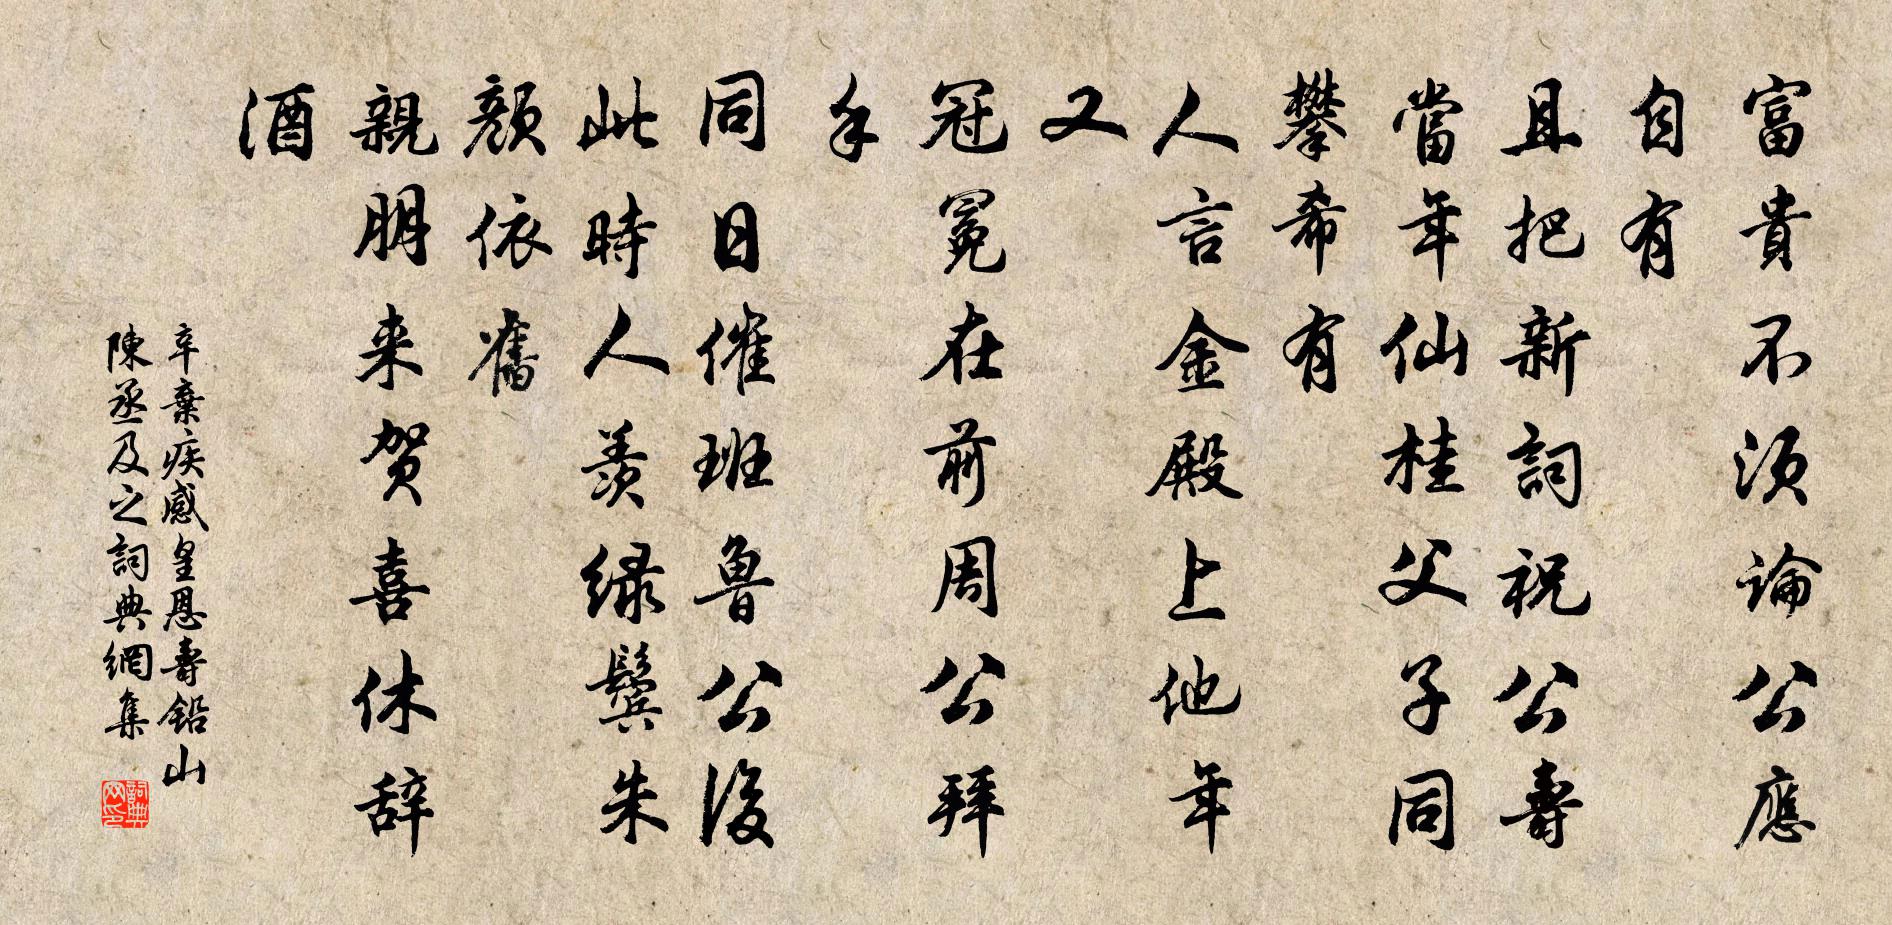 富貴不須論公應
自有
且把新詞祝公壽
當年仙桂父子同
攀希有
人言金殿上他年
又
冠冕在前周公拜
手
同日催班魯公後
此時人羨緑鬢朱
顏依舊
親朋来賀喜休辞
酒
辛棄疾感皇恩壽鉛山
陳丞及之詞典網集
詞典
网印